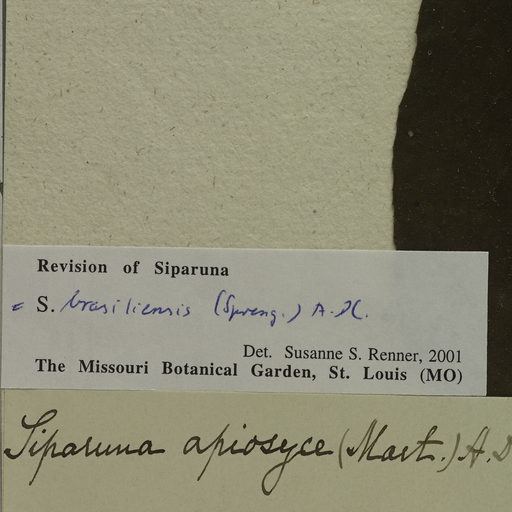 Revision of Siparuna
= S. brasiliensis (Spreng.) A. DC.
Det. Susanne S. Renner, 2001
The Missouri Botanical Garden, St. Louis (MO)
Siparuna apiosyce (Mart.) A. D